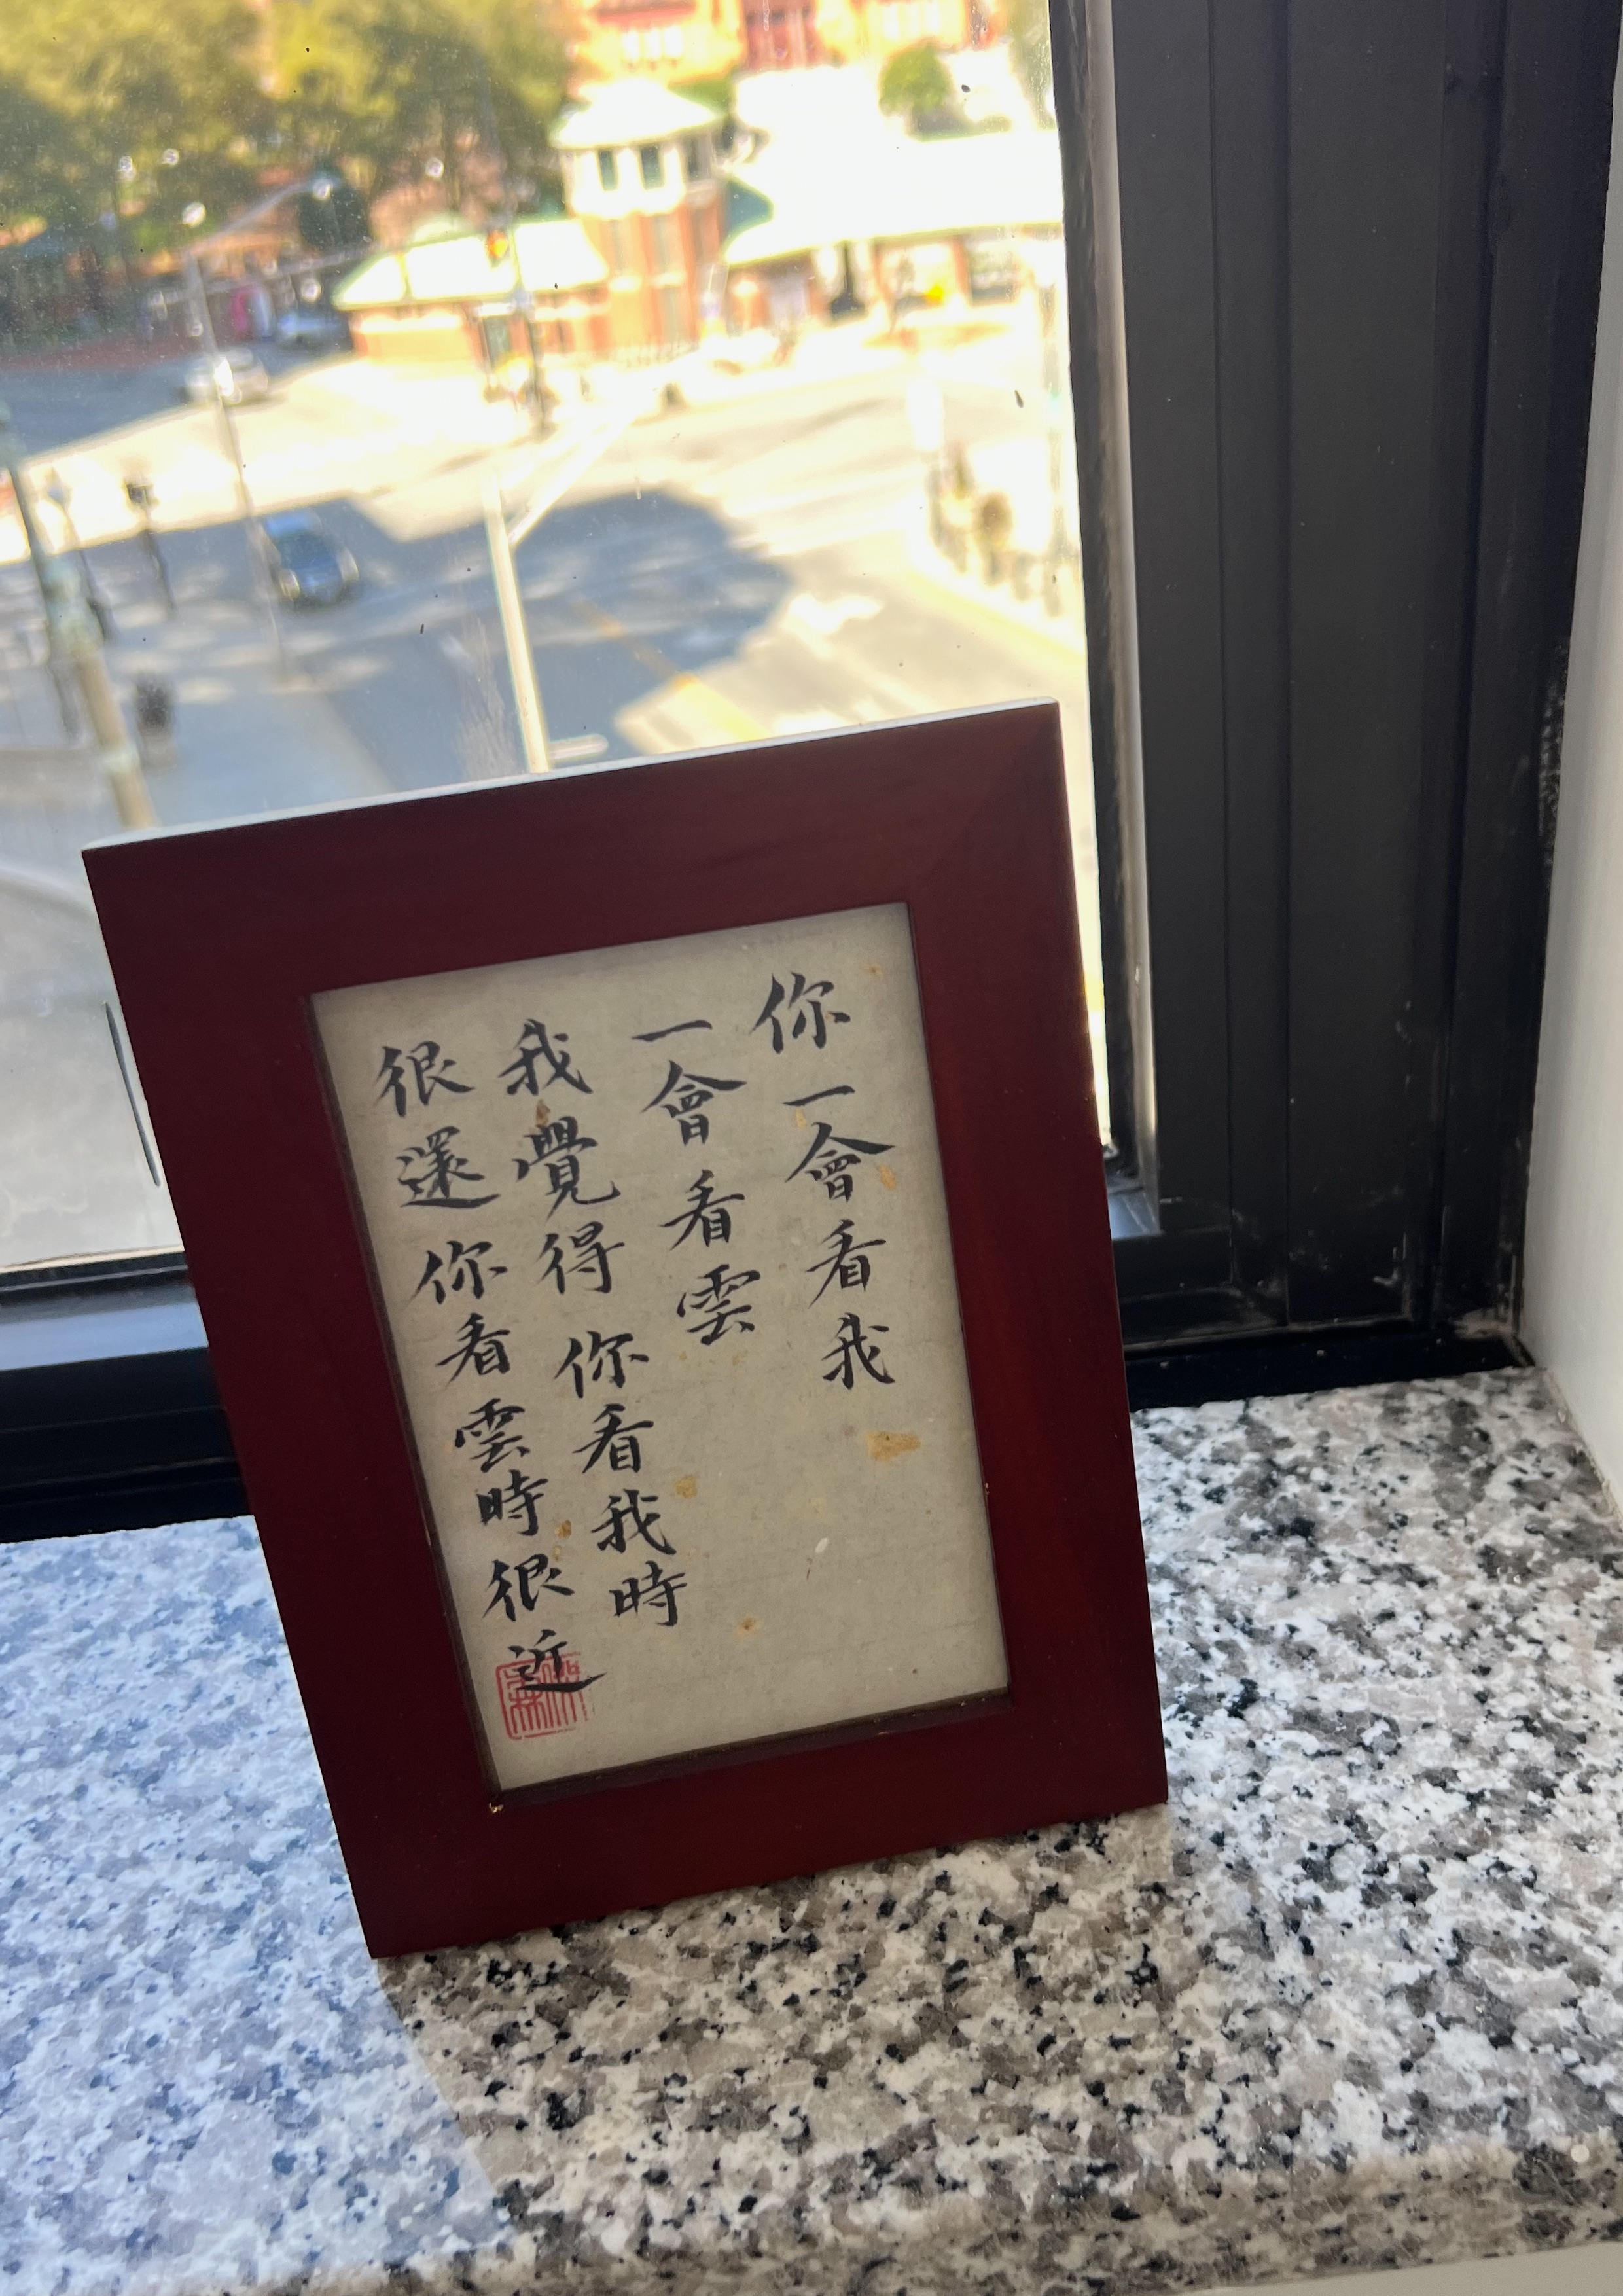 你一會看我
一會看雲
我覺得你看我時
很遠你看雲時很近